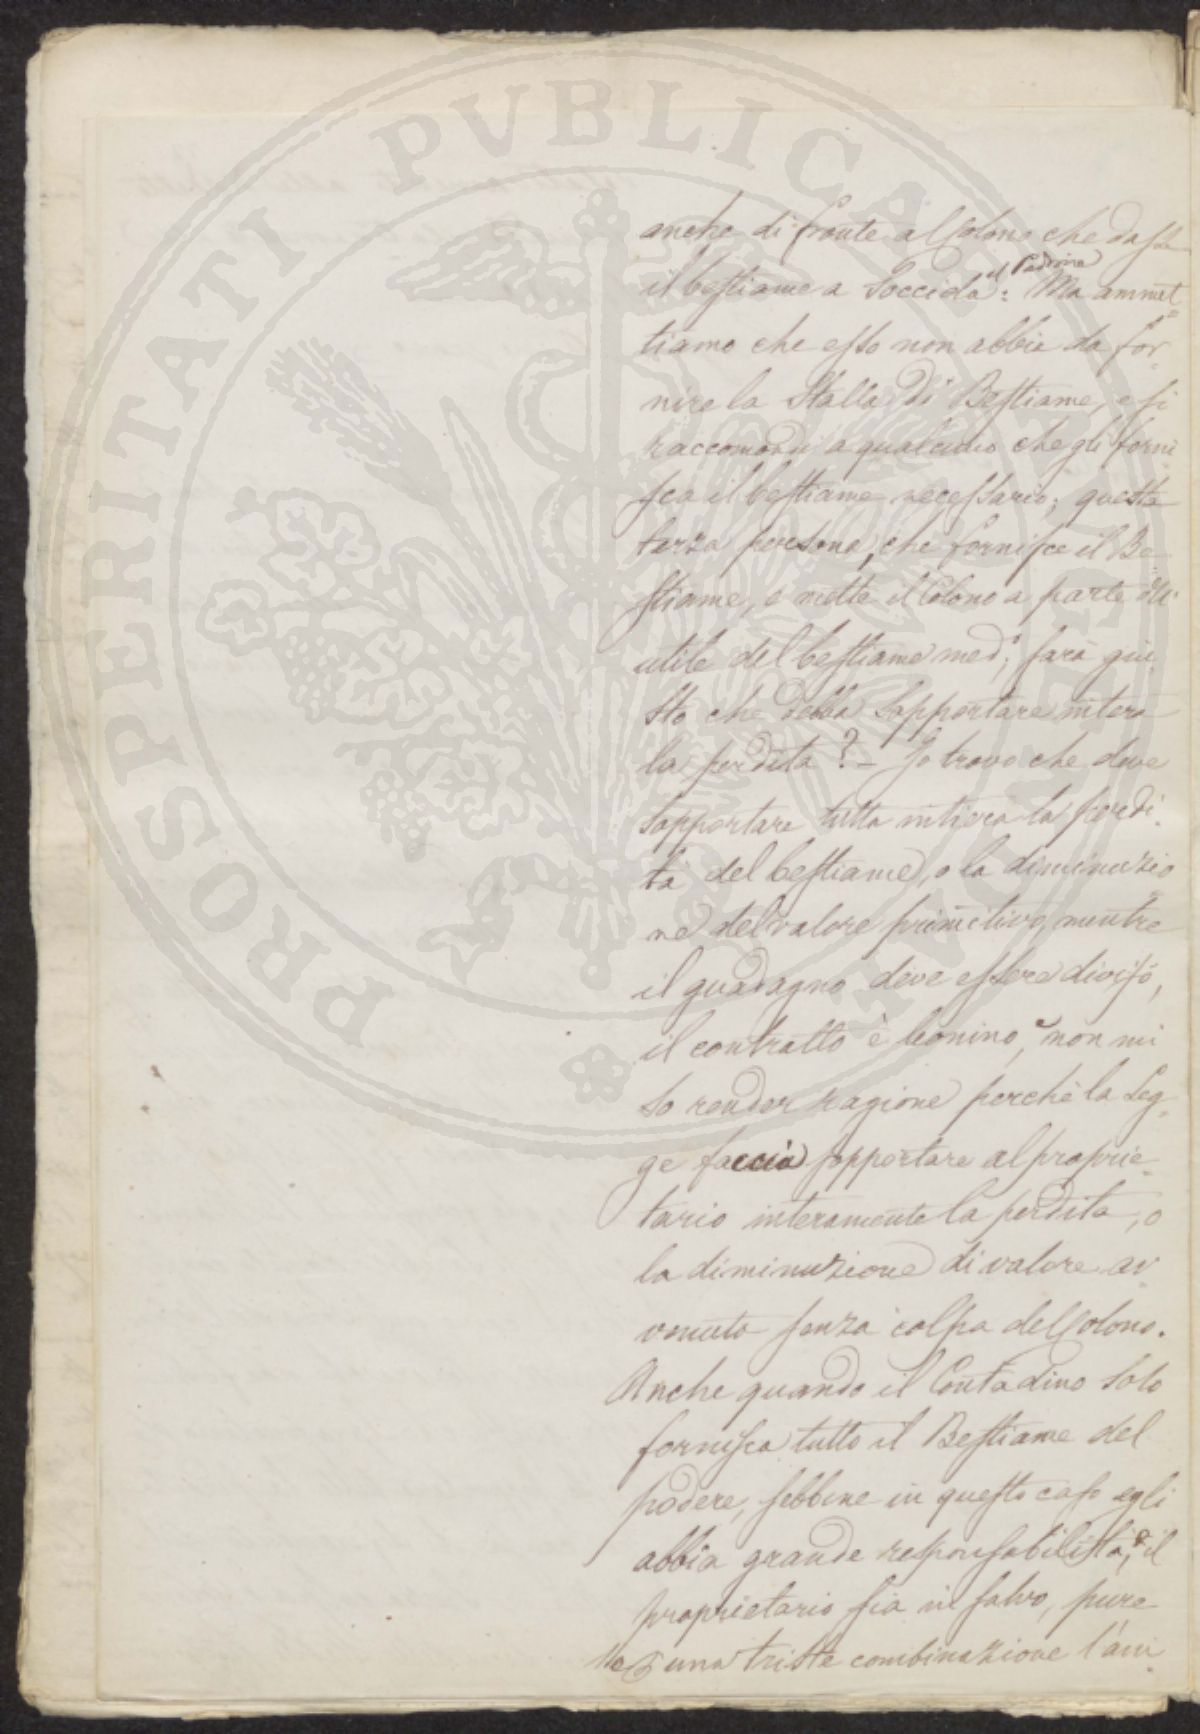 PROSPERITATI PVBLICAE AVGENDAE
anche di fronte al Colono che dasse
il bestiame a Soccida il Padrone: Ma ammet=
tiamo che esso non abbia da for-
nire la Stalla di Bestiame, e si
raccomandi a qualcuno che gli forni-
sca il bestiame necessario; questa
terza persona, che fornisce il Be-
stiame, e mette il Colono a parte dell'
utile del bestiame med.º, sarà giu-
sto che debba sopportare intera
la perdita? – Io trovo che deve
sopportare tutta intiera la perdi-
ta del bestiame, o la diminuzio
ne del valore primitivo, mentre
il guadagno deve essere diviso,
il contratto è leonino, e non mi
so render ragione perchè la Leg-
ge faccia sopportare al proprie-
tario interamente la perdita, o
la diminuzione di valore av
venuta senza colpa del Colono.
Anche quando il Contadino solo
fornisca tutto il Bestiame del
podere, sebbene in questo caso egli
abbia grande responsabilità, e il
proprietario sia in salvo, pure
è una triste combinazione l'avi